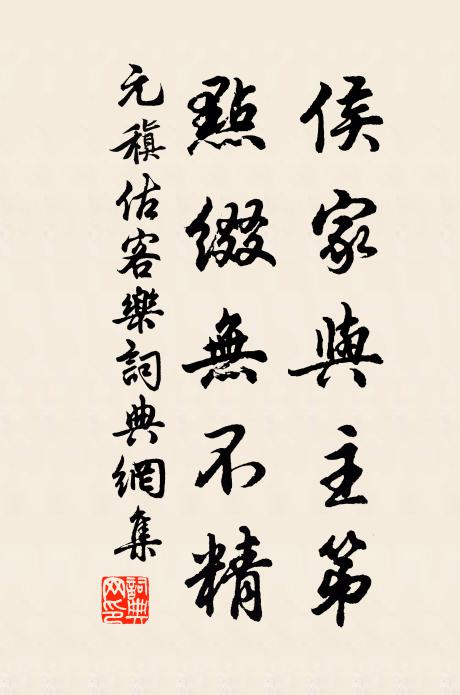 侯家與主第
點綴無不精
元稹估客樂詞典網集
詞典網印